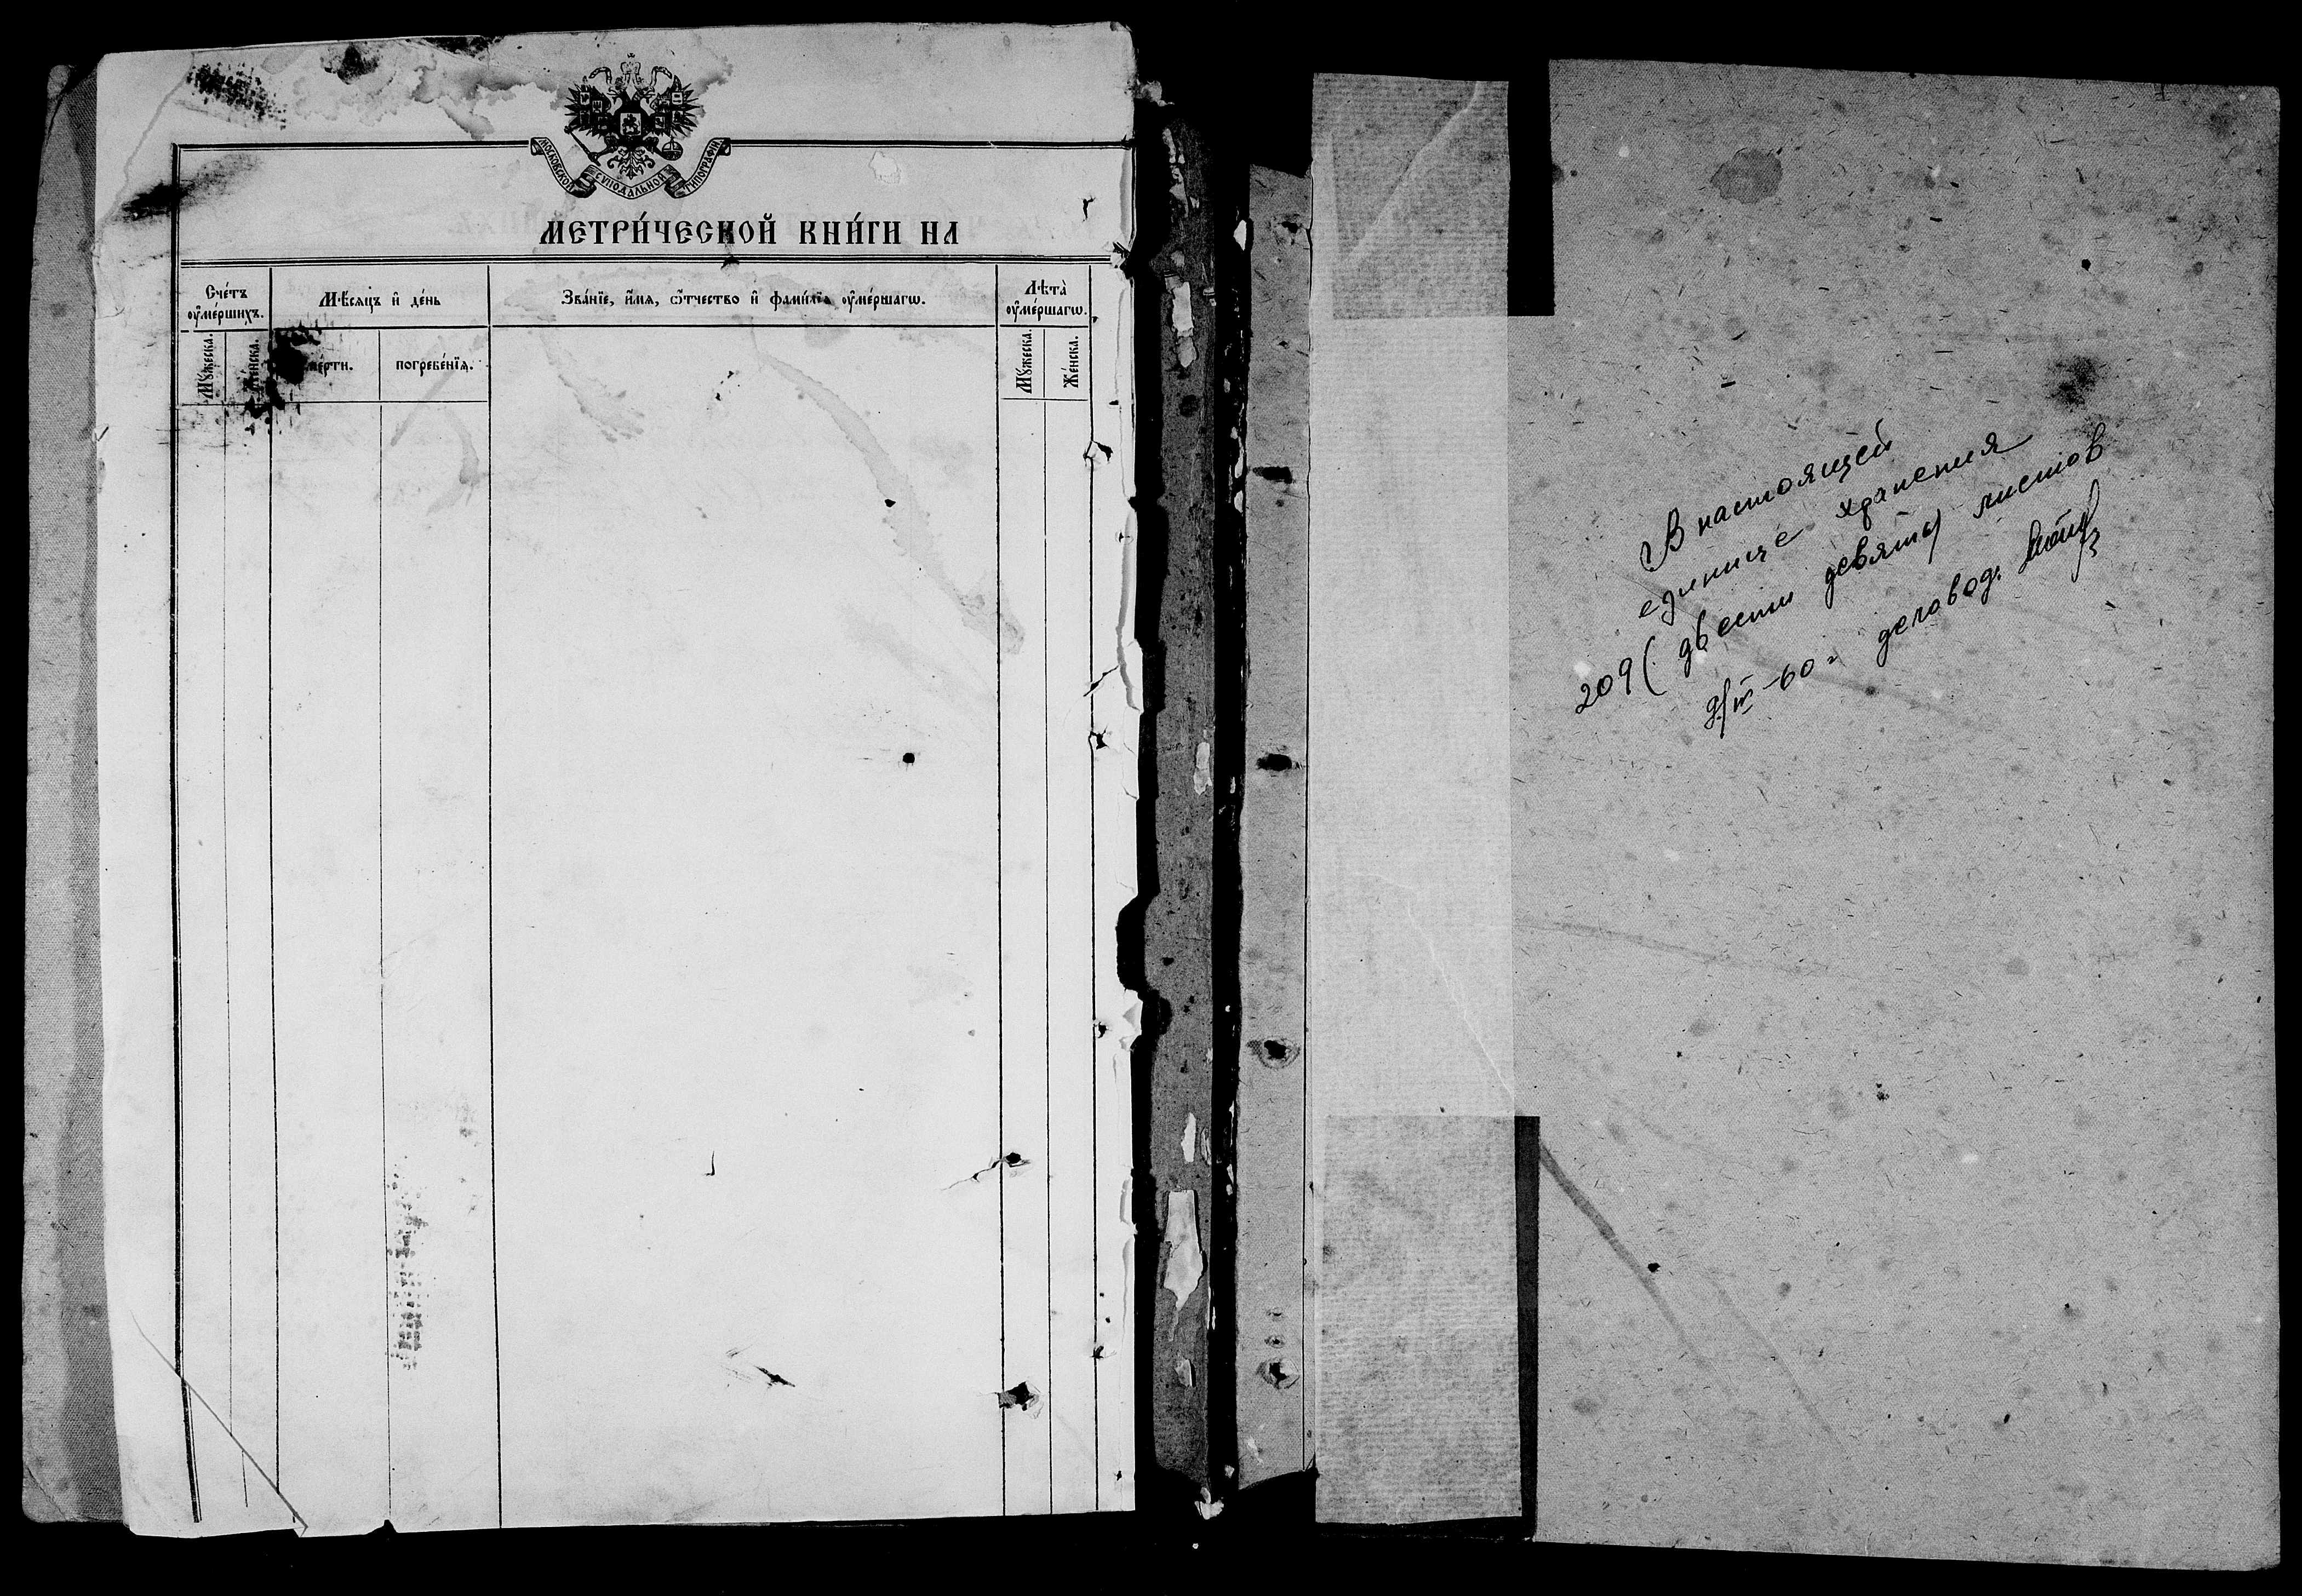 МОСКОВСКОЙ СѴНОДАЛЬНОЙ ТИПОГРАФІИ
МЕТРИ́ЧЕСКОЙ КНИ́ГИ НА
Сче́тъ ᲂу҆ме́ршихъ.
Мѣ́сѧцъ и҆ де́нь
Зва́нїе, и҆́мѧ, ѻ҆́тчество и҆ фами́лїѧ ᲂу҆ме́ршагѡ.
Лѣ́та ᲂу҆ме́ршагѡ.
Мꙋ́жеска.
Же́нска.
сме́рти.
погребе́нїѧ.
Мꙋ́жеска.
Же́нска.
В настоящей
единице хранения
209 (двести девять) листов
9/IV-60 г. деловод.